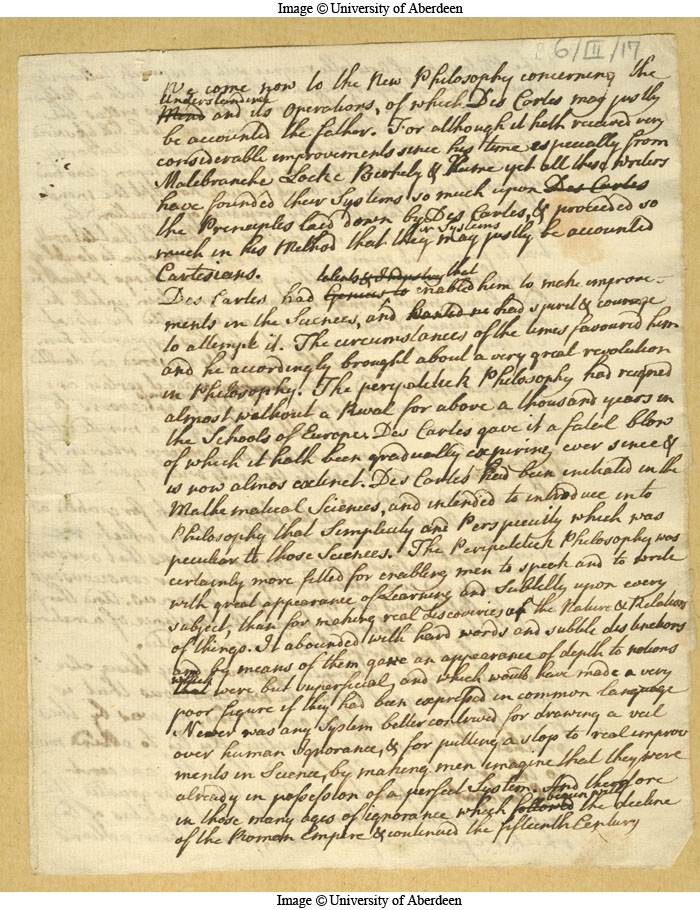 Image © University of Aberdeen
6/III/17
We come now to the New Philosophy concerning the
Understanding
Mind and its Operations, of which Des Cartes may justly
be accounted the father. For although it hath received very
considerable improvements since his time especially from
Malebranche Locke Berkely & Hume yet all these writers
have founded their Systems so much upon Des Cartes
the Principles laid down by Des Cartes, & proceeded so
their Systems
much in his Method that they may justly be accounted
Cartesians.
talents & Industry that
Des Cartes had Genius to enabled him to make improve-
ments in the Sciences, and he had spirit & courage
to attempt it. The circumstances of the times favoured him
and he accordingly brought about a very great revolution
in Philosophy. The perypatetick Philosophy had reigned
almost without a Rival for above a thousand years in
the Schools of Europe. Des Cartes gave it a fatal blow
of which it hath been gradually expiring ever since &
is now almos extinct. Des Cartes had been initiated in the
Mathematical Sciences, and intended to introduce into
Philosophy that Simplicity and Perspecuity which was
peculiar to those Sciences. The Peripatetick Philosophy was
certainly more fitted for enabling men to speak and to write
with great appearance of Learning and Subtilty upon every
subject, than for making real discoveries of the Nature & Relations
of things. It abounded with hard words and subtile distinctions
and by means of them gave an appearance of depth to notions
which
that were but superficial, and which would have made a very
poor figure if they had been expressed in common language
Never was any System better contrived for drawing a veil
over human Ignorance, & for putting a stop to real improv
ments in Science, by making men imagine that they were
already in possession of a perfect System. And therefore
begun with
in those many ages of ignorance which followed the decline
of the Roman Empire & continued the fifteenth Century
Image © University of Aberdeen